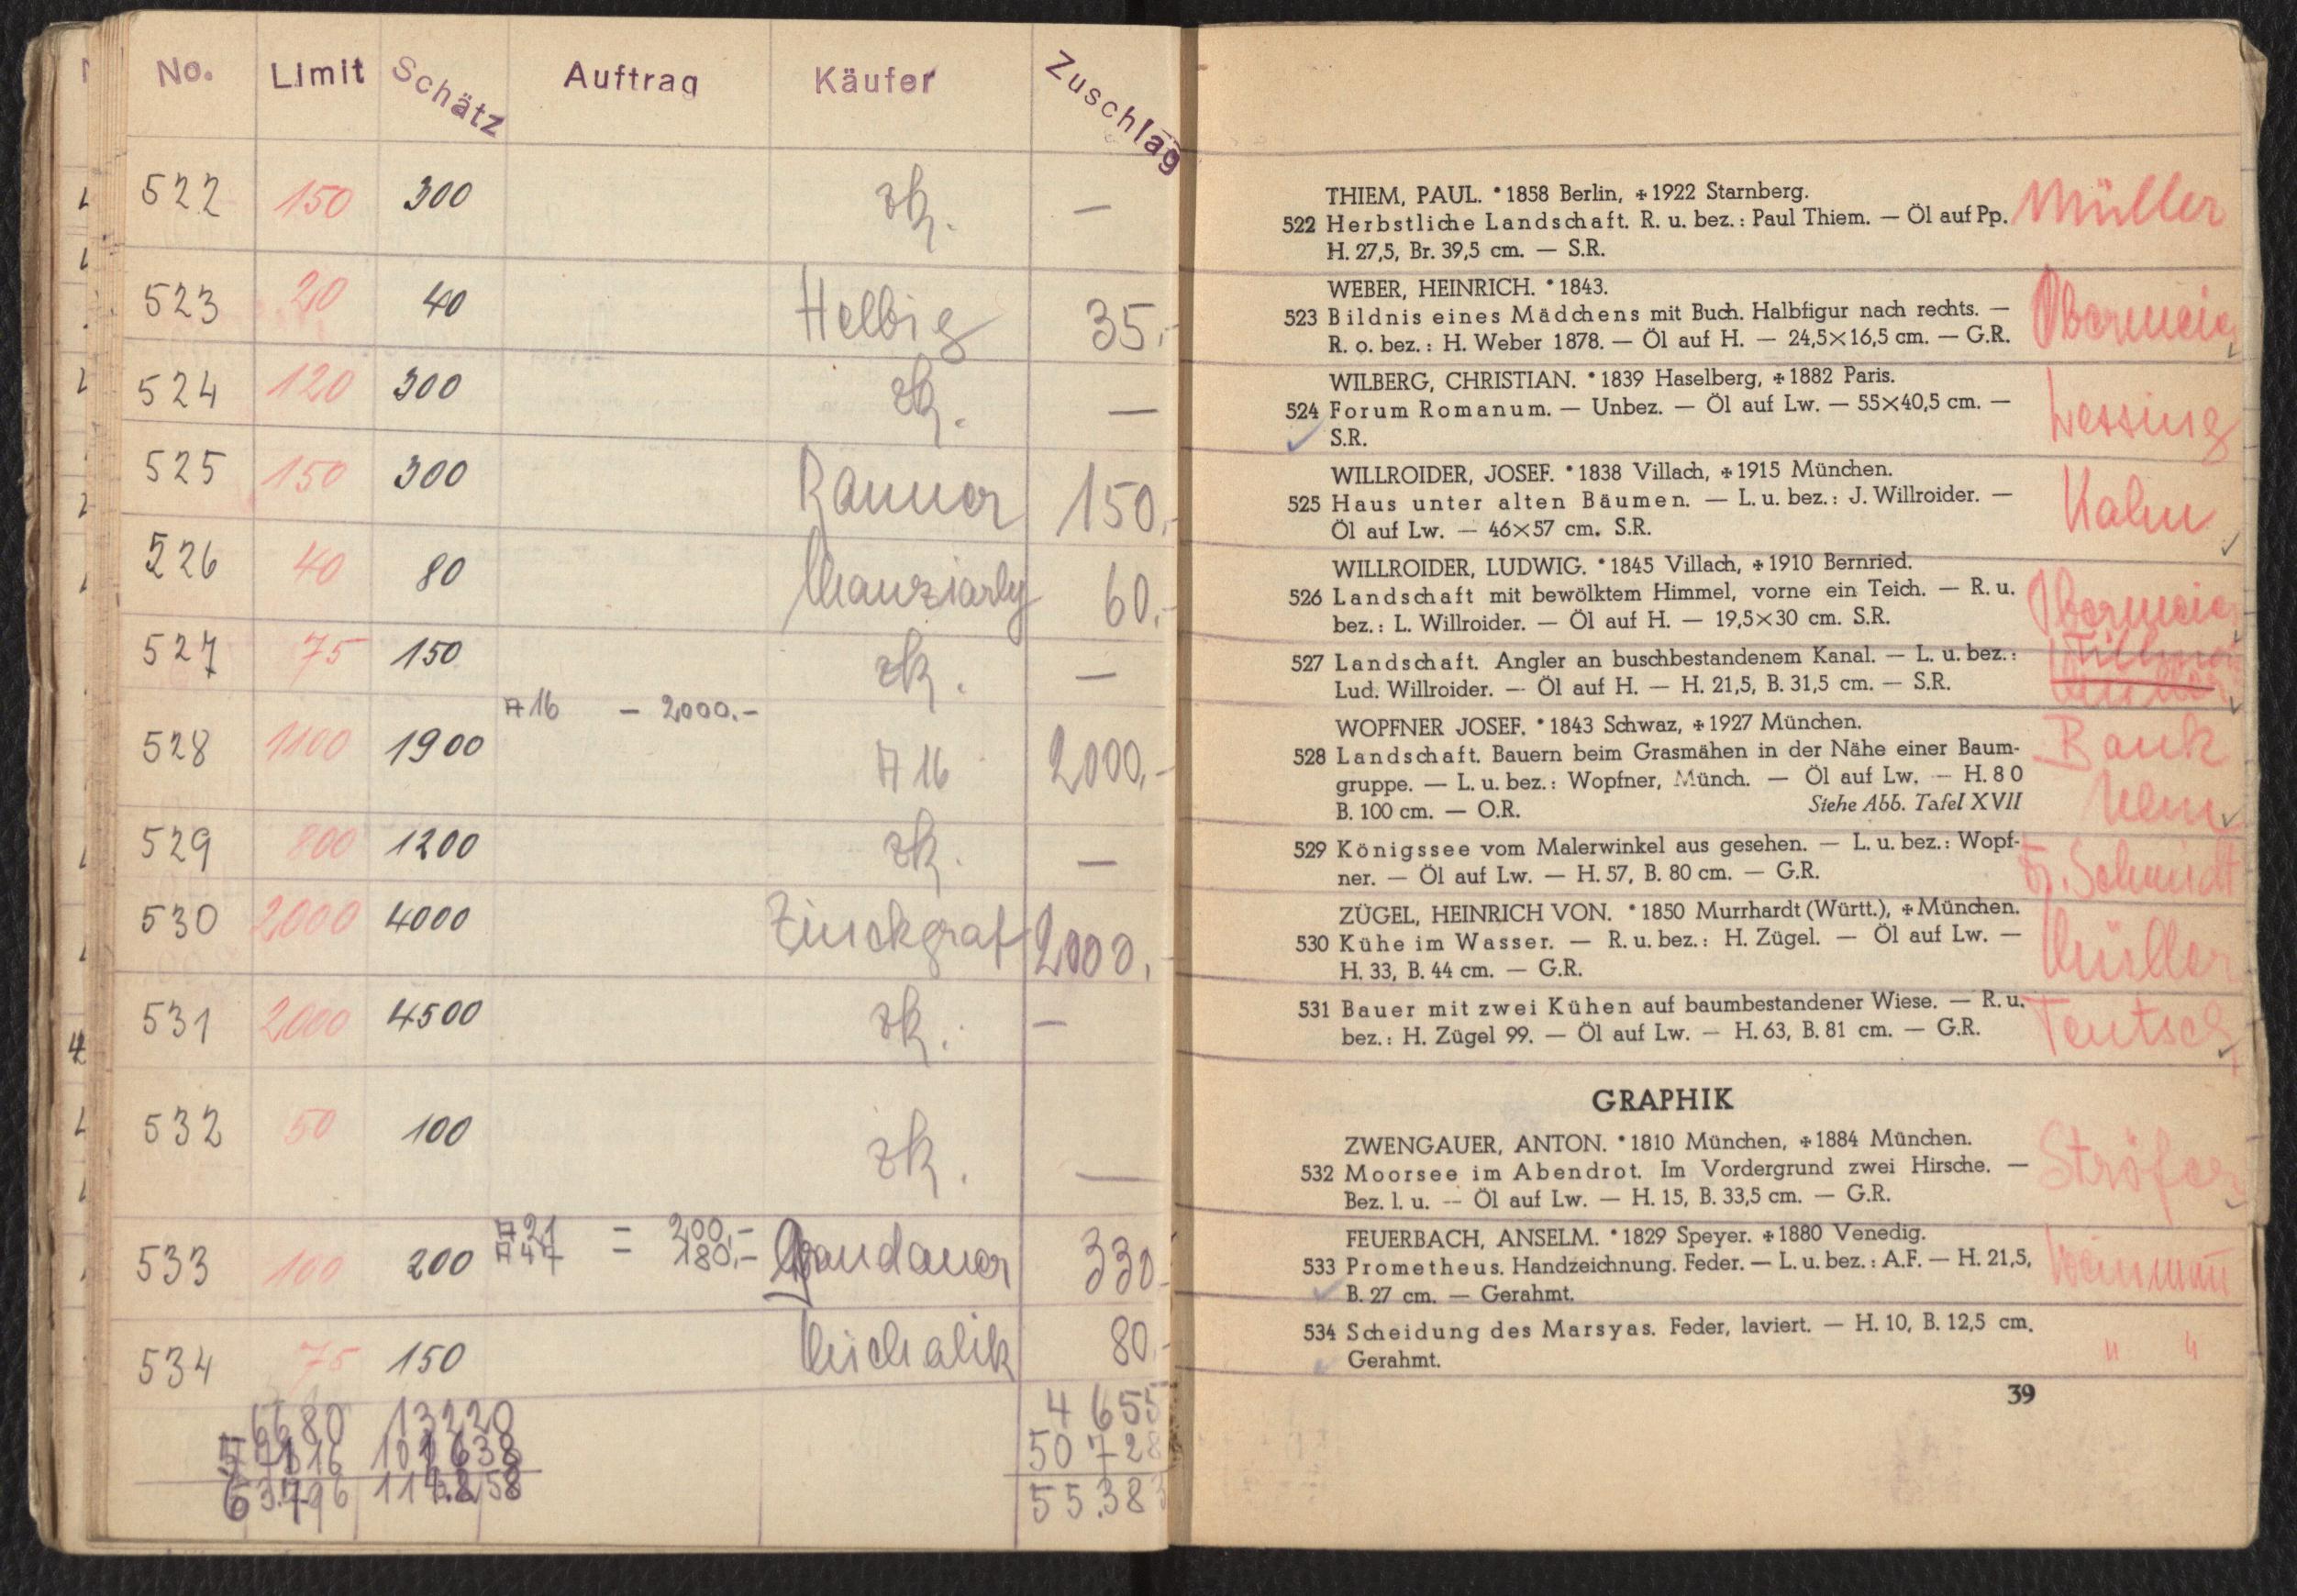 No. Limit Schätz Auftrag Käufer Zuschlag
522 150 300 zk. —
523 20 40 Helbig 35.-
524 120 300 zk. —
525 150 300 Ranner 150.-
526 40 80 Manziarly 60.-
527 75 150 zk. —
A 16 — 2000.-
528 1100 1900 A 16 2000.-
529 800 1200 zk. —
530 2000 4000 Zinckgraf 2000.-
531 2000 4500 zk. —
532 50 100 zk. —
A 21 — 200.-
533 100 200 A 47 — 180.- Gandauer 330.-
534 75 150 Michalik 80.-
6680 13220 4 655
101638 50 728
55.383
THIEM, PAUL. * 1858 Berlin, ✠ 1922 Starnberg. Müller
522 Herbstliche Landschaft. R. u. bez.: Paul Thiem. — Öl auf Pp.
H. 27,5, Br. 39,5 cm. — S.R.
WEBER, HEINRICH. * 1843.
523 Bildnis eines Mädchens mit Buch. Halbfigur nach rechts. — Obermeier
R. o. bez.: H. Weber 1878. — Öl auf H. — 24,5×16,5 cm. — G.R.
WILBERG, CHRISTIAN. * 1839 Haselberg, ✠ 1882 Paris.
524 Forum Romanum. — Unbez. — Öl auf Lw. — 55×40,5 cm. — Lessing
S.R.
WILLROIDER, JOSEF. * 1838 Villach, ✠ 1915 München.
525 Haus unter alten Bäumen. — L. u. bez.: J. Willroider. — Kahn
Öl auf Lw. — 46×57 cm. S.R.
WILLROIDER, LUDWIG. * 1845 Villach, ✠ 1910 Bernried.
526 Landschaft mit bewölktem Himmel, vorne ein Teich. — R. u. Obermeier
bez.: L. Willroider. — Öl auf H. — 19,5×30 cm. S.R.
527 Landschaft. Angler an buschbestandenem Kanal. — L. u. bez.:
Lud. Willroider. — Öl auf H. — H. 21,5, B. 31,5 cm. — S.R.
WOPFNER JOSEF. * 1843 Schwaz, ✠ 1927 München.
528 Landschaft. Bauern beim Grasmähen in der Nähe einer Baum- Bank
gruppe. — L. u. bez.: Wopfner, Münch. — Öl auf Lw. — H. 80
B. 100 cm. — O.R. Siehe Abb. Tafel XVII
529 Königssee vom Malerwinkel aus gesehen. — L. u. bez.: Wopf- Schmidt
ner. — Öl auf Lw. — H. 57, B. 80 cm. — G.R.
ZÜGEL, HEINRICH VON. * 1850 Murrhardt (Württ.), ✠ München.
530 Kühe im Wasser. — R. u. bez.: H. Zügel. — Öl auf Lw. — Müller
H. 33, B. 44 cm. — G.R.
531 Bauer mit zwei Kühen auf baumbestandener Wiese. — R. u. Teutsch
bez.: H. Zügel 99. — Öl auf Lw. — H. 63, B. 81 cm. — G.R.
GRAPHIK
ZWENGAUER, ANTON. * 1810 München, ✠ 1884 München.
532 Moorsee im Abendrot. Im Vordergrund zwei Hirsche. — Ströfer
Bez. l. u. — Öl auf Lw. — H. 15, B. 33,5 cm. — G.R.
FEUERBACH, ANSELM. * 1829 Speyer. ✠ 1880 Venedig.
533 Prometheus. Handzeichnung. Feder. — L. u. bez.: A.F. — H. 21,5,
B. 27 cm. — Gerahmt.
534 Scheidung des Marsyas. Feder, laviert. — H. 10, B. 12,5 cm. " "
Gerahmt.
39